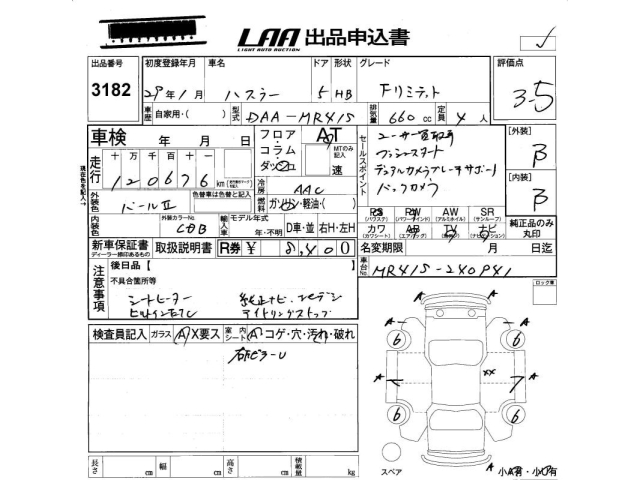 LAA 出品申込書
LIGHT AUTO AUCTION
出品番号 初度登録年月 車名 ドア 形状 グレード 評価点
3182 29年1月 ハスラー 5 HB Fリミテッド 3.5
車歴 自家用・( ) 型式 DAA-MR41S 排気量 660 cc 定員 4 人
車検 年 月 日
フロア・コラム・ダッシュ AT MTのみ記入 速
セールスポイント
ユーザー買取車
プッシュスタート
デュアルカメラブレーキサポート
バックカメラ
[外装] B
[内装] B
純正品のみ丸印
現在色を記入→
走行 十 万 千 百 十 一
120676 km
冷房 AAC
燃料 ガソリン・軽油・( )
外装色 パールII 色替車は色替と記入
PS (パワステ) PW (パワーウインド) AW (アルミホイル) SR (サンルーフ)
カワ (カワシート) AB (エアバッグ) TV (テレビ) ナビ (ナビゲーション)
内装色 外装カラーNo. 輸入車 モデル年式 年・不明 D車・並 右H・左H
新車保証書 ディーラー捺印あるもの 取扱説明書 R券 ¥ 8,400
名変期限 月 日迄
車台No. MR41S-240941
注意事項 後日品【 】
不具合箇所等
シートヒーター 純正ナビ、
アイドリングストップ
ロック有
検査員記入 ガラス A X要ス 室内シート A コゲ・穴・汚れ・破れ
右ピラーU
A A
6 6
A XX A
6 6
スペア A A 小A有・小U有
長さ cm 幅 cm 高さ cm 積載量 kg